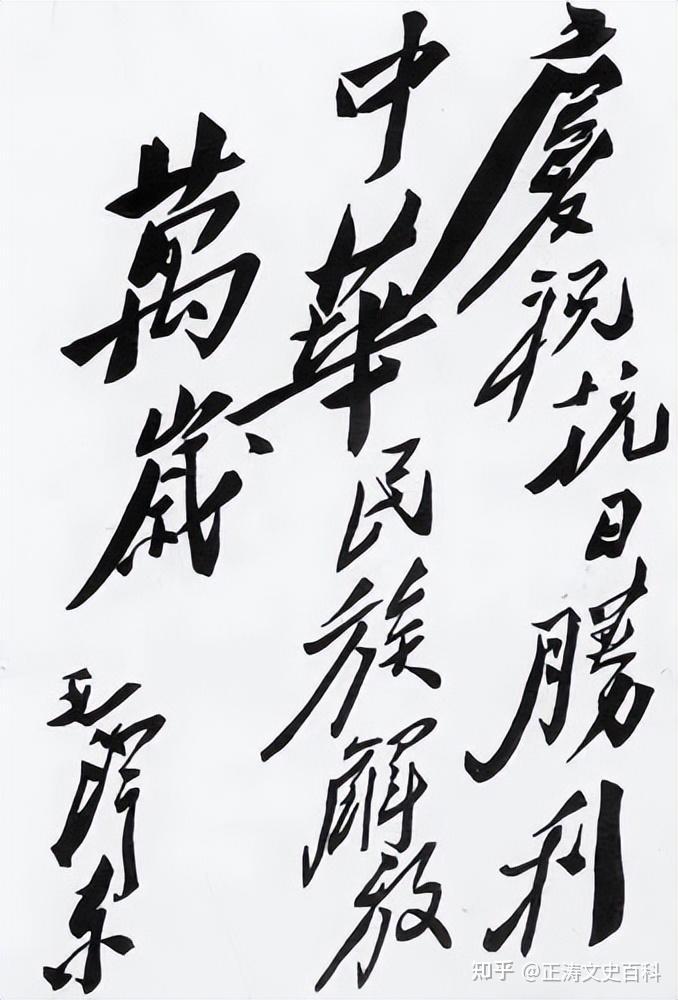 慶祝抗日勝利
中華民族解放
萬歲
毛澤东
知乎 @正涛文史百科